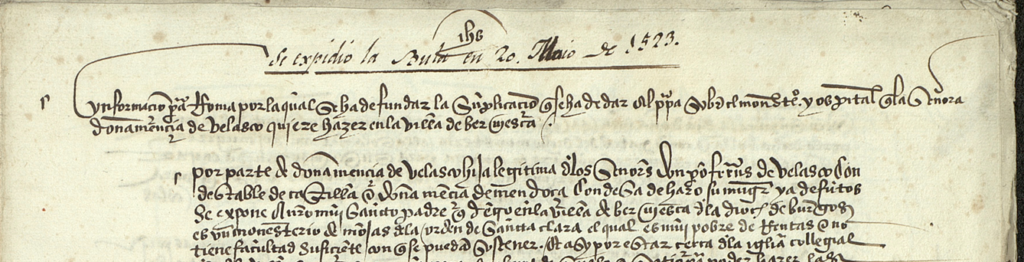 ihs
Se expidio la Bula en 20. Maio de 1523.
ynformacio pa Roma por la qual se ha de fundar la suplicacio q se ha de dar al ppa sobrel monesto. y ospital q la señora
doña mençia de velasco quiere hazer en la villa de berviesca
por parte de doña mencia de velasco hija legitima dlos señors don po frrs de velasco con
destable de castilla & doña mençia de mendoça condesa de haro su muger ya defutos
se expone a nro muy sancto padre q dzo en la villa de berviesca dla dioc de burgos
es un monesterio de mojas de la orden de santa clara el qual es muy pobre de Rentas & no
tiene facultad suficiete con q se pueda sostener. & asy por estar cerca dla iglia collegial